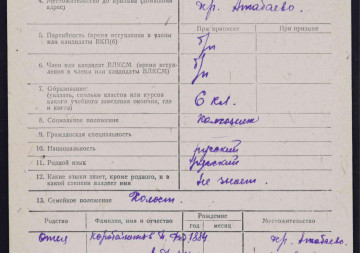 4. Местожительство до призыва (домашний адрес)
пр. Атабаево.
При призыве
5. Партийность (время вступления в члены или кандидаты ВКП(б)
б/п
6. Член или кандидат ВЛКСМ (время вступления в члены или кандидаты ВЛКСМ)
б/п
7. Образование: (указать, сколько классов или курсов какого учебного заведения окончил, где и когда)
6 кл.
8. Социальное положение
Колхозник
9. Гражданская специальность
10. Национальность
русский
11. Родной язык
русский
12. Какие языки знает, кроме родного, и в какой степени владеет ими
Не знает.
13. Семейное положение
Холост.
Родство
Фамилия, имя и отчество
Рождение
год
месяц
Местожительство
Отец
1884
пр. Атабаево